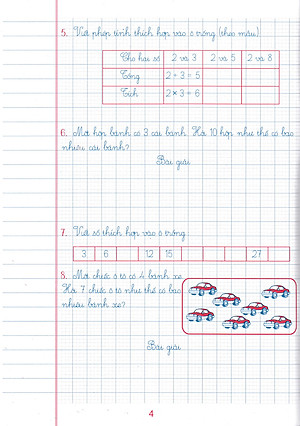 5. Viết phép tính thích hợp vào ô trống (theo mẫu)
Cho hai số 2 và 3 2 và 5 2 và 8
Tổng 2 + 3 = 5
Tích 2 × 3 = 6
6. Mỗi hộp bánh có 3 cái bánh. Hỏi 10 hộp như thế có bao
nhiêu cái bánh?
Bài giải
7. Viết số thích hợp vào ô trống
3 6 12 15 27
8. Một chiếc ô tô có 4 bánh xe.
Hỏi 7 chiếc ô tô như thế có bao
nhiêu bánh xe?
Bài giải
4